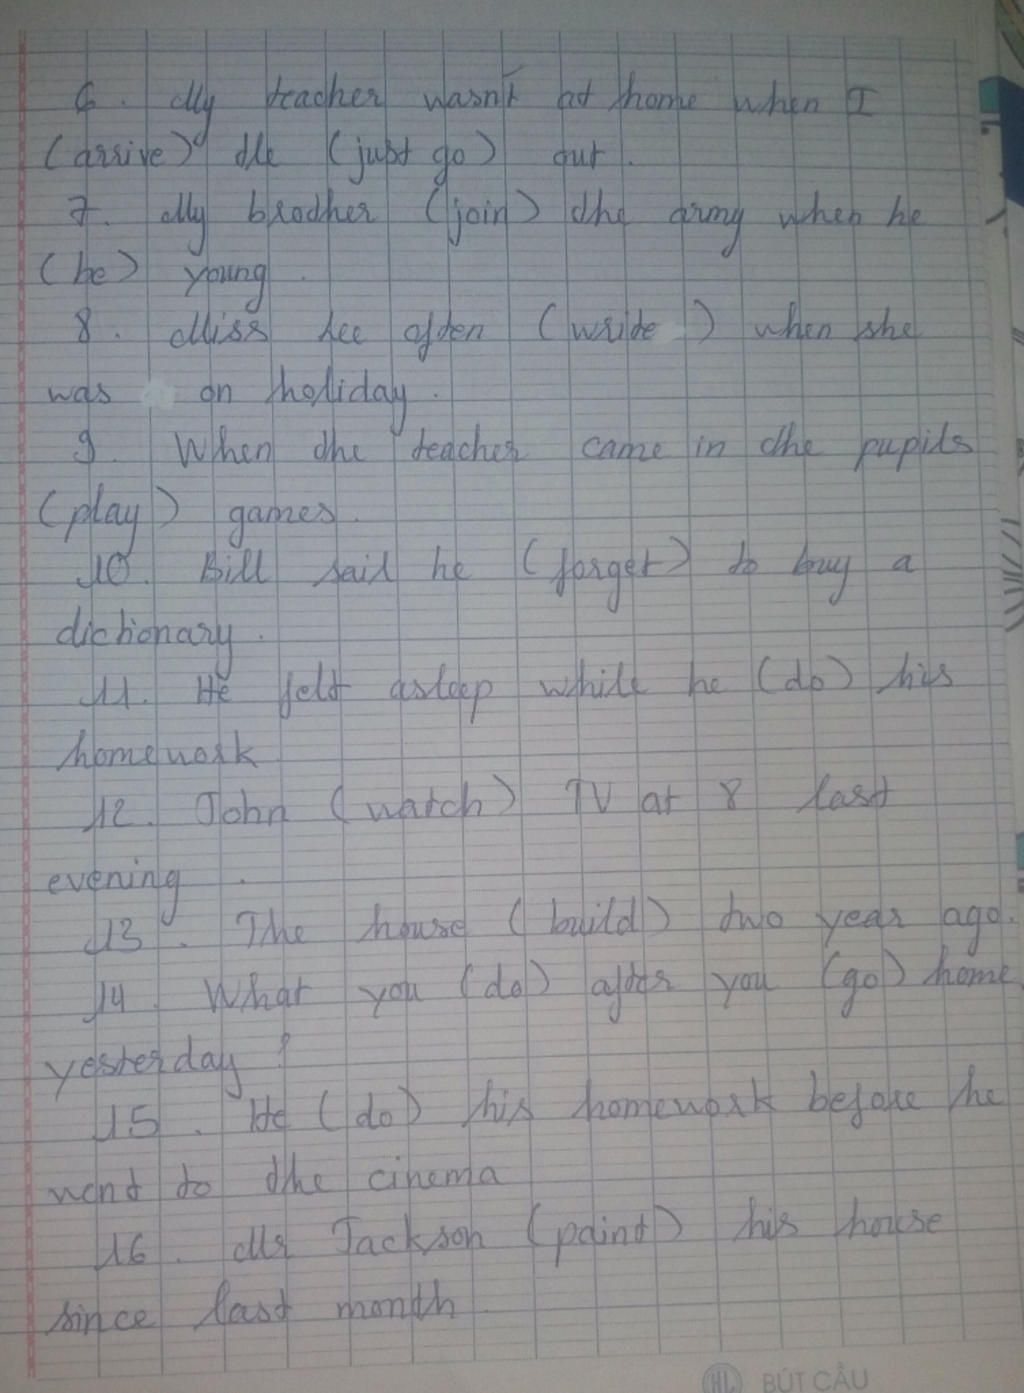 6. My teacher wasn't at home when I
(arrive) He (just go) out.
7. My brother (join) the army when he
(be) young.
8. Miss Lee often (write) when she
was on holiday.
9. When the teacher came in the pupils
(play) games.
10. Bill said he (forget) to buy a
dictionary.
11. He felt asleep while he (do) his
homework
12. John (watch) TV at 8 last
evening.
13. The house (build) two year ago.
14. What you (do) after you (go) home
yesterday?
15. He (do) his homework before he
went to the cinema
16. Mr Jackson (paint) his house
since last month
HL BÚT CÂU